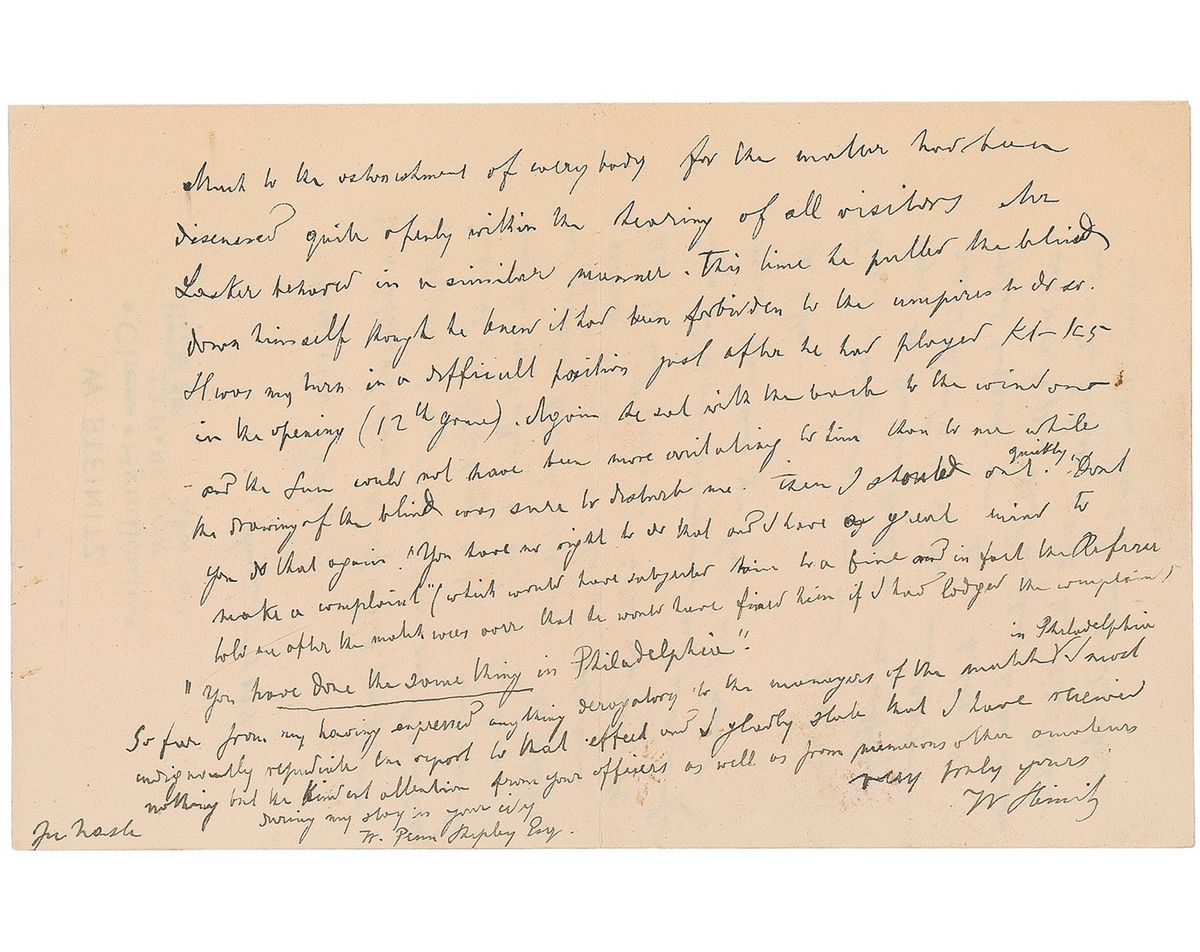 Much to the astonishment of everybody for the matter had been
discussed quite openly within the hearing of all visitors Mr
Lasker behaved in a similar manner. This time he pulled the blind
down himself though he knew it had been forbidden to the umpires to do so.
It was my turn in a difficult position just after he had played Kt-K5
in the opening (12th game). Again he sat with the back to the window
and the sun could not have been more irritating to him than to me while
the drawing of the blind was sure to disturb me. Then I should out quickly "Dont
you do that again." "You have no right to do that and I have a great mind to
make a complaint" (which would have subjected him to a fine and in fact the Referee
told me after the match was over that he would have fined him if I had lodged the complaint)
"You have done the same thing in Philadelphia".
So far from my having expressed anything derogatory to the managers of the match in Philadelphia I most
indignantly repudiate the report to that effect and I gladly state that I have received
nothing but the kindest attention from your officers as well as from numerous other amateurs
during my stay in your city
very truly yours
W Steinitz
W. Penn Shipley Esq.
In haste
W. STEINITZ